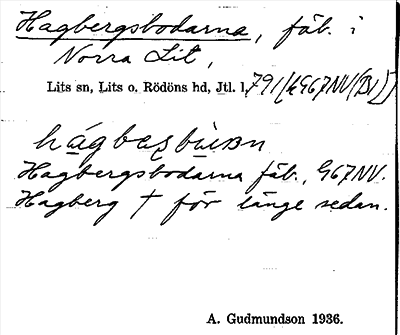 Hagbergsbodarna, fäb. i
Norra Lit,
Lits sn, Lits o. Rödöns hd, Jtl. 1,791
Hagbergsbodarna fäb., G67NV.
Hagberg † för länge sedan.
A. Gudmundson 1936.